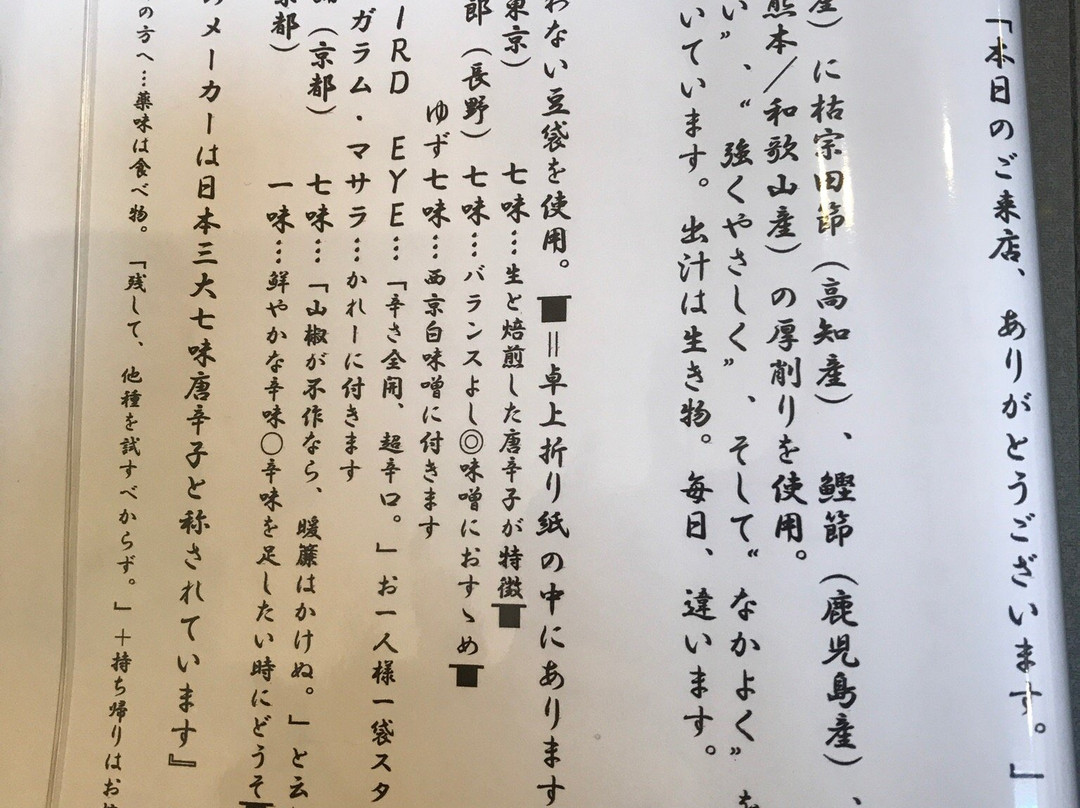 「本日のご来店、ありがとうございます。」
産)に枯宗田節(高知産)、鰹節(鹿児島産)、
熊本/和歌山産)の厚削りを使用。
い”、“強くやさしく”、そして“なかよく”を
いています。出汁は生き物。毎日、違います。
わない豆袋を使用。■=卓上折り紙の中にあります
東京) 七味…生と焙煎した唐辛子が特徴■
郎(長野) 七味…バランスよし◎味噌におすゝめ■
ゆず七味…西京白味噌に付きます
IRD EYE…「辛さ全開、超辛口。」お一人様一袋スタ
ガラム・マサラ…かれーに付きます
(京都) 七味…「山椒が不作なら、暖簾はかけぬ。」と云
京都) 一味…鮮やかな辛味○辛味を足したい時にどうぞ■
のメーカーは日本三大七味唐辛子と称されています』
の方へ…薬味は食べ物。「残して、他種を試すべからず。」+持ち帰りはお